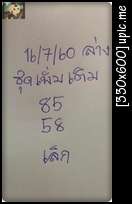 16/7/60 ล่าง
ชุดเพิ่มเติม
85
58
เล็ก
[350x600] upic.me